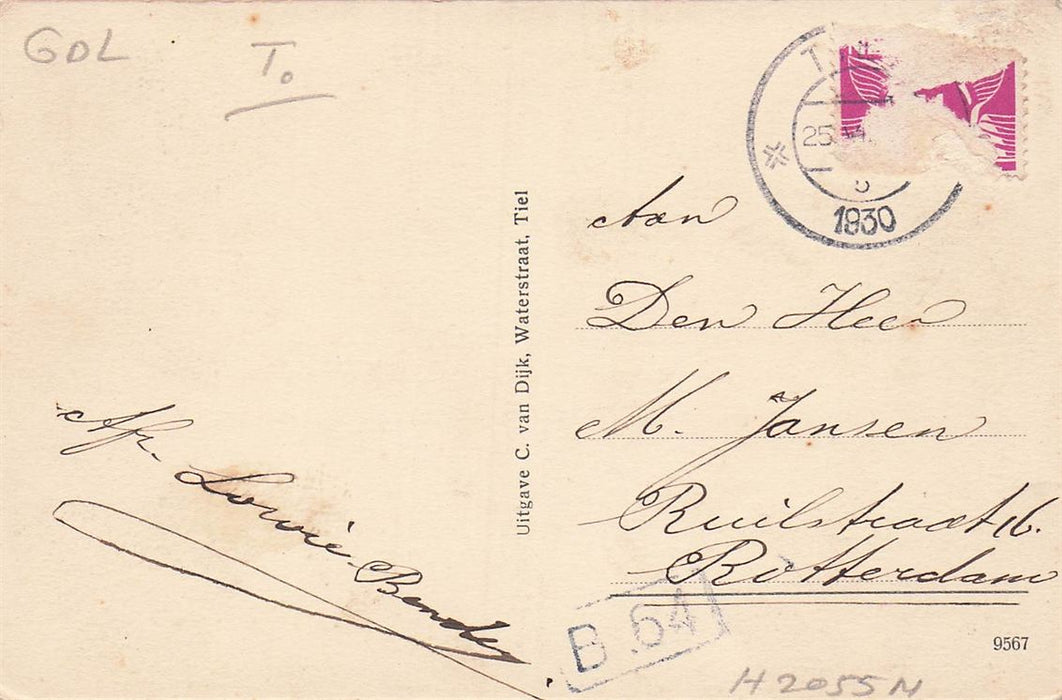 GDL
T.
25
1930
Aan
Den Heer
M. Jansen
Ruilstraat 16.
Rotterdam
Afz. Lowie Bender
Uitgave C. van Dijk, Waterstraat, Tiel
B.64
9567
H2055N